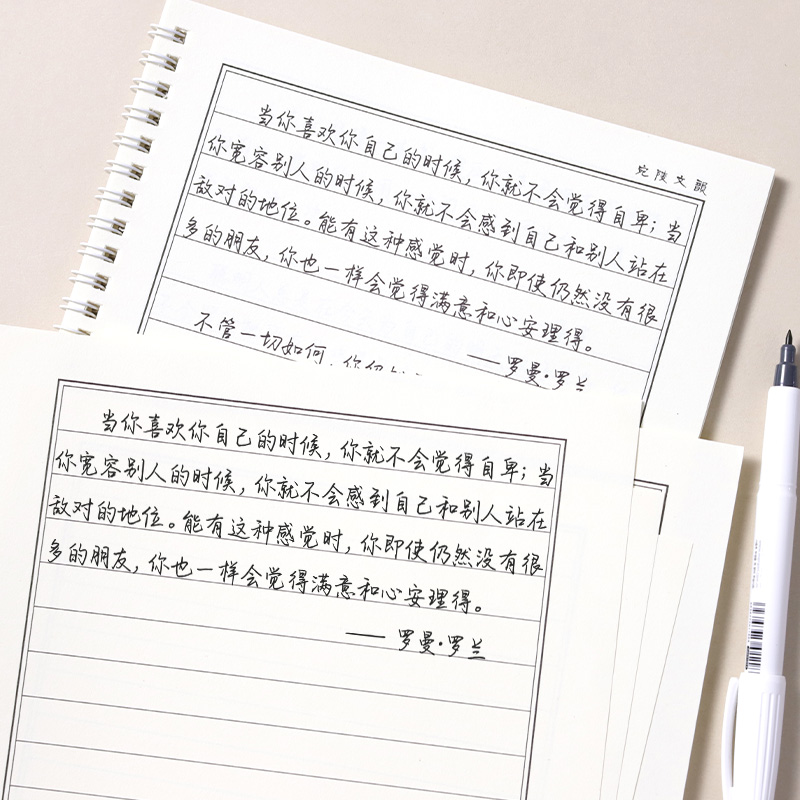 宛陵文韻
当你喜欢你自己的时候，你就不会觉得自卑；当
你宽容别人的时候，你就不会感到自己和别人站在
敌对的地位。能有这种感觉时，你即使仍然没有很
多的朋友，你也一样会觉得满意和心安理得。
——罗曼·罗兰
不管一切如何，你仍
当你喜欢你自己的时候，你就不会觉得自卑；当
你宽容别人的时候，你就不会感到自己和别人站在
敌对的地位。能有这种感觉时，你即使仍然没有很
多的朋友，你也一样会觉得满意和心安理得。
—— 罗曼·罗兰